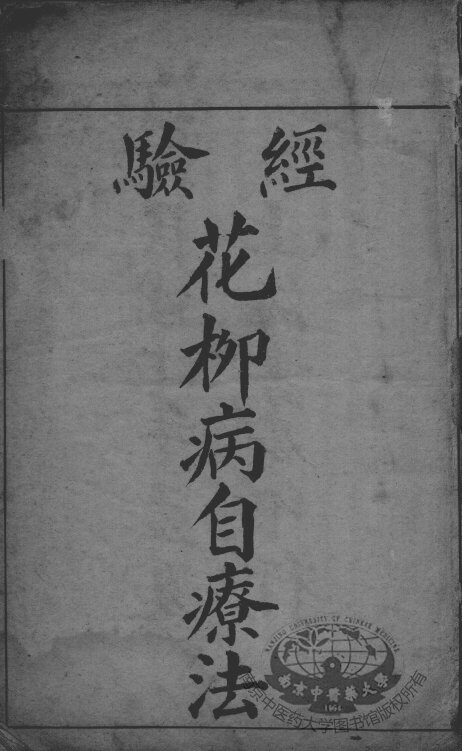 經驗
花柳病自療法
NANJING UNIVERSITY OF CHINESE MEDICINE
南京中醫藥大學
1954
南京中医药大学图书馆版权所有